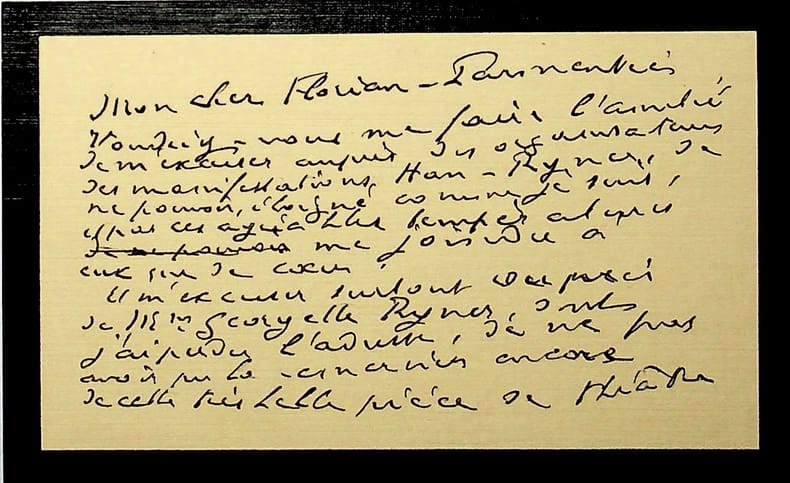 Mon cher Florian-Parmentier
Voudriez-vous me faire l'amitié
de m'excuser auprès des organisateurs
des manifestations Han-Ryner, de
ne pouvoir, éloigné comme je suis,
et par ces agitables tempêtes
je ne pouvais me joindre à
eux que de cœur.
Et m'excuser surtout auprès
de Mme Georgette Ryner, dont
j'ai perdu l'adresse, de ne pas
avoir pu la remercier encore
de cette très belle pièce de théâtre